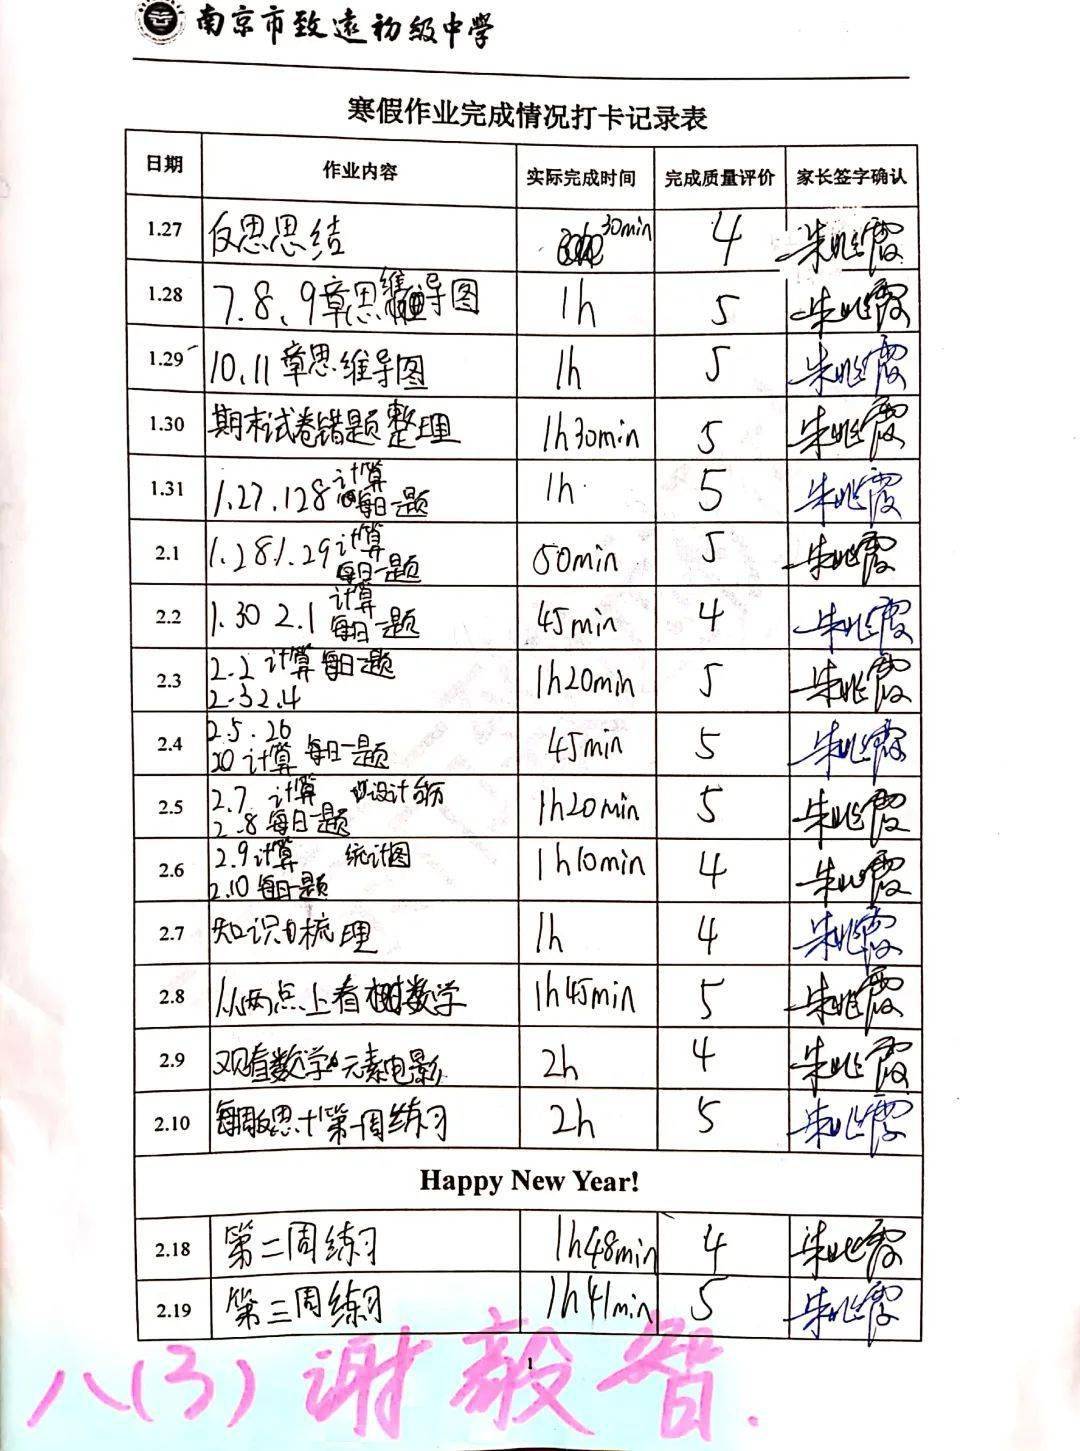 南京市致远初级中学
寒假作业完成情况打卡记录表
日期 作业内容 实际完成时间 完成质量评价 家长签字确认
1.27 反思思结 30min 4 朱兆霞
1.28 7.8、9章思维导图 1h 5 朱兆霞
1.29 10.11章思维导图 1h 5 朱兆霞
1.30 期末试卷错题整理 1h30min 5 朱兆霞
1.31 1.27.128 计算 每日一题 1h 5 朱兆霞
2.1 1.281.29 计算 每日一题 50min 5 朱兆霞
2.2 1.30 2.1 计算 每日一题 45min 4 朱兆霞
2.3 2.2 计算 每日一题 1h20min 5 朱兆霞
2.32.4
2.4 2.5.26 45min 5 朱兆霞
计算 每日一题
2.5 2.7 计算 设计 1h20min 5 朱兆霞
2.8 每日一题
2.6 2.9 计算 统计图 1h10min 4 朱兆霞
2.10 每日一题
2.7 知识梳理 1h 4 朱兆霞
2.8 从两点上看数学 1h45min 5 朱兆霞
2.9 观看数学元素电影 2h 4 朱兆霞
2.10 每周反思+第一周练习 2h 5 朱兆霞
Happy New Year!
2.18 第二周练习 1h48min 4 朱兆霞
2.19 第三周练习 1h41min 5 朱兆霞
1
八(3)谢毅智.